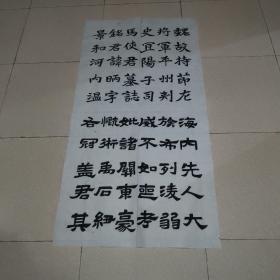 魏故持節左
将軍平州刺
史宜陽子司
馬使君墓誌
銘君諱昞字
景和河内温
海内先人大
族布列淩弱
威不如孝
妣諸關東豪
慨術禹石紐
冠盖君其